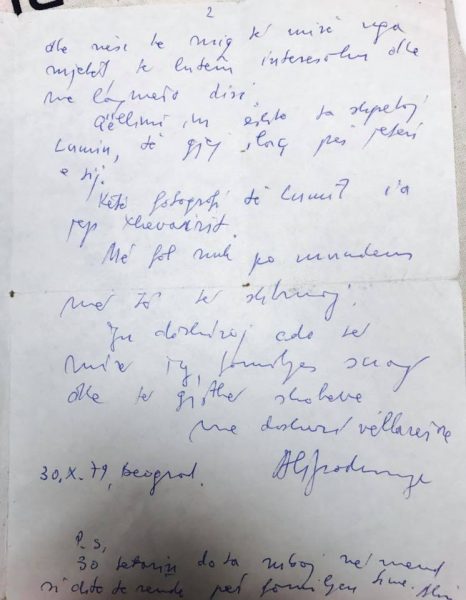 2
dhe nëse te miq të mirë nga
mjekët te lutem interesohu dhe
më lajmëro disi.
Qëllimi im është ta shpëtoj
Lumin, të gjej ilaç për jetën
e tij.
Këtë fotografi të Lumit ia
jep Xhevahirit.
Më fal nuk po mundem
më të shkruaj.
Ju dëshiroj çdo të
mirë ty, familjes suaj
dhe të gjithë shokëve
me dashuri vëllazërore
30.X.79, Beograd.
P.S.
30 tetorin do ta mbaj në mend
si ditë të rëndë për familjen time.